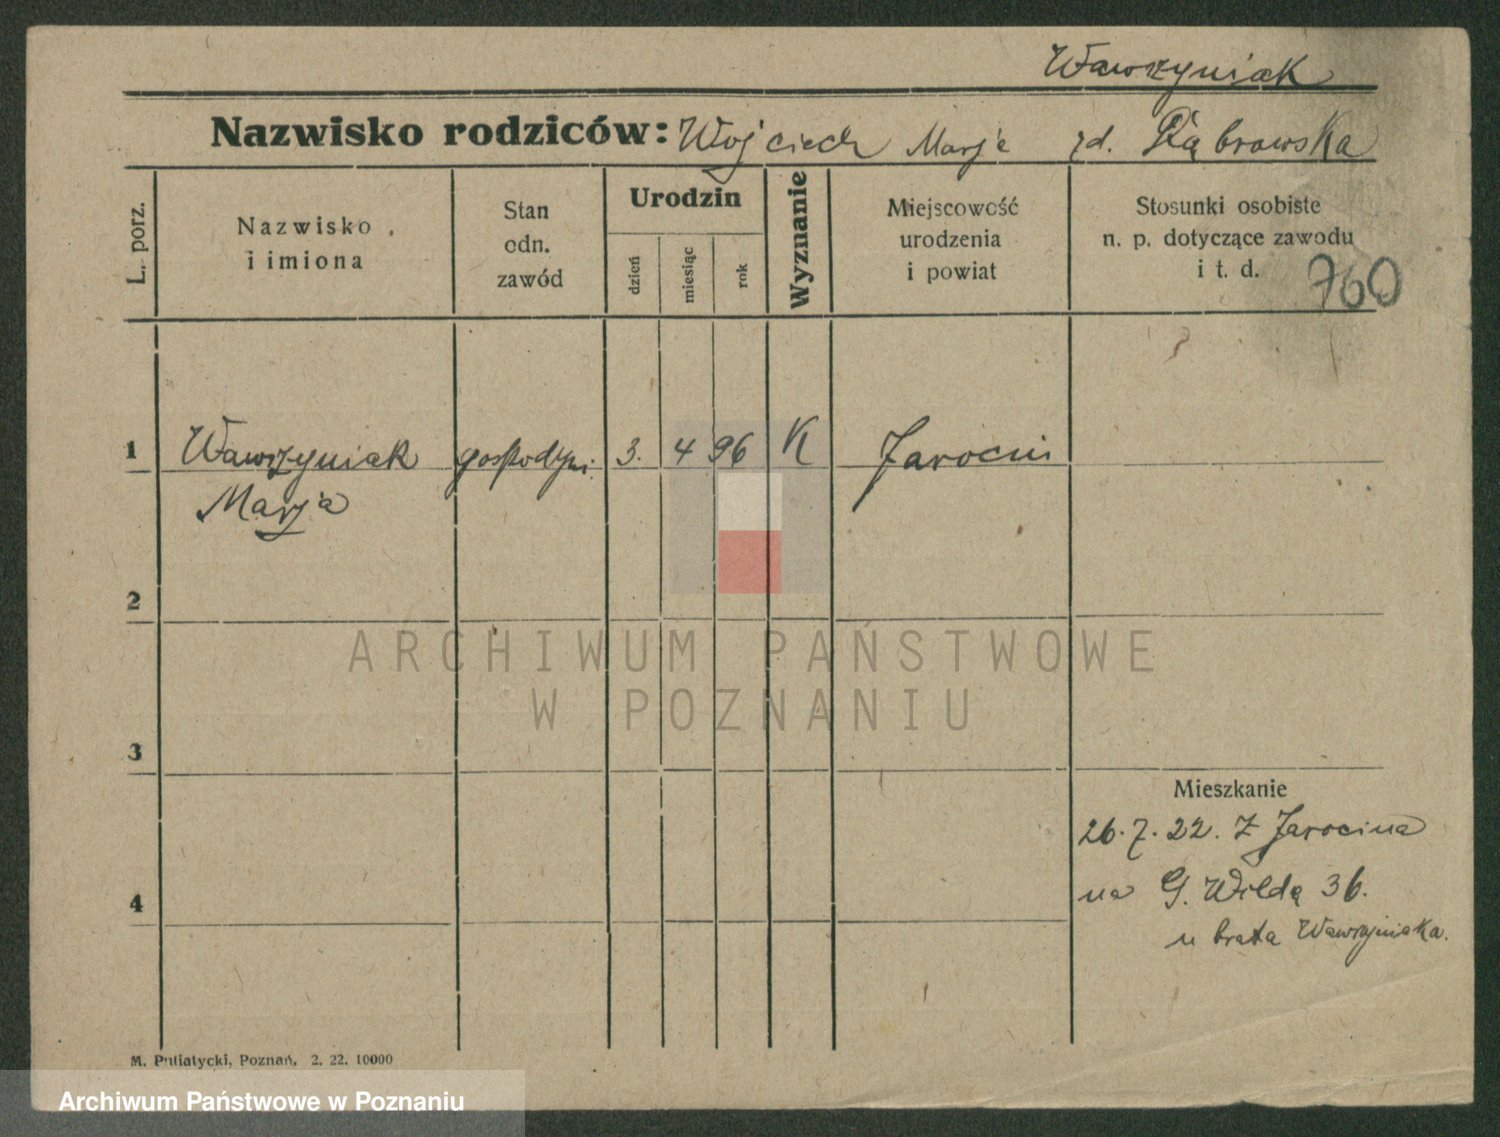 Wawrzyniak
Nazwisko rodziców: Wojciech Marja zd. Dąbrowska
L. porz.
Nazwisko
i imiona
Stan
odn.
zawód
Urodzin
dzień
miesiąc
rok
Wyznanie
Miejscowość
urodzenia
i powiat
Stosunki osobiste
n. p. dotyczące zawodu
i t. d.
760
1 Wawrzyniak gospodyni 3. 4 96 K Jarocin
Marja
2
ARCHIWUM PAŃSTWOWE
W POZNANIU
3
Mieszkanie
26. 7. 22. z Jarocina
4
na G. Wildą 36.
u brata Wawrzyniaka.
M. Putiatycki, Poznań. 2. 22. 10000
Archiwum Państwowe w Poznaniu